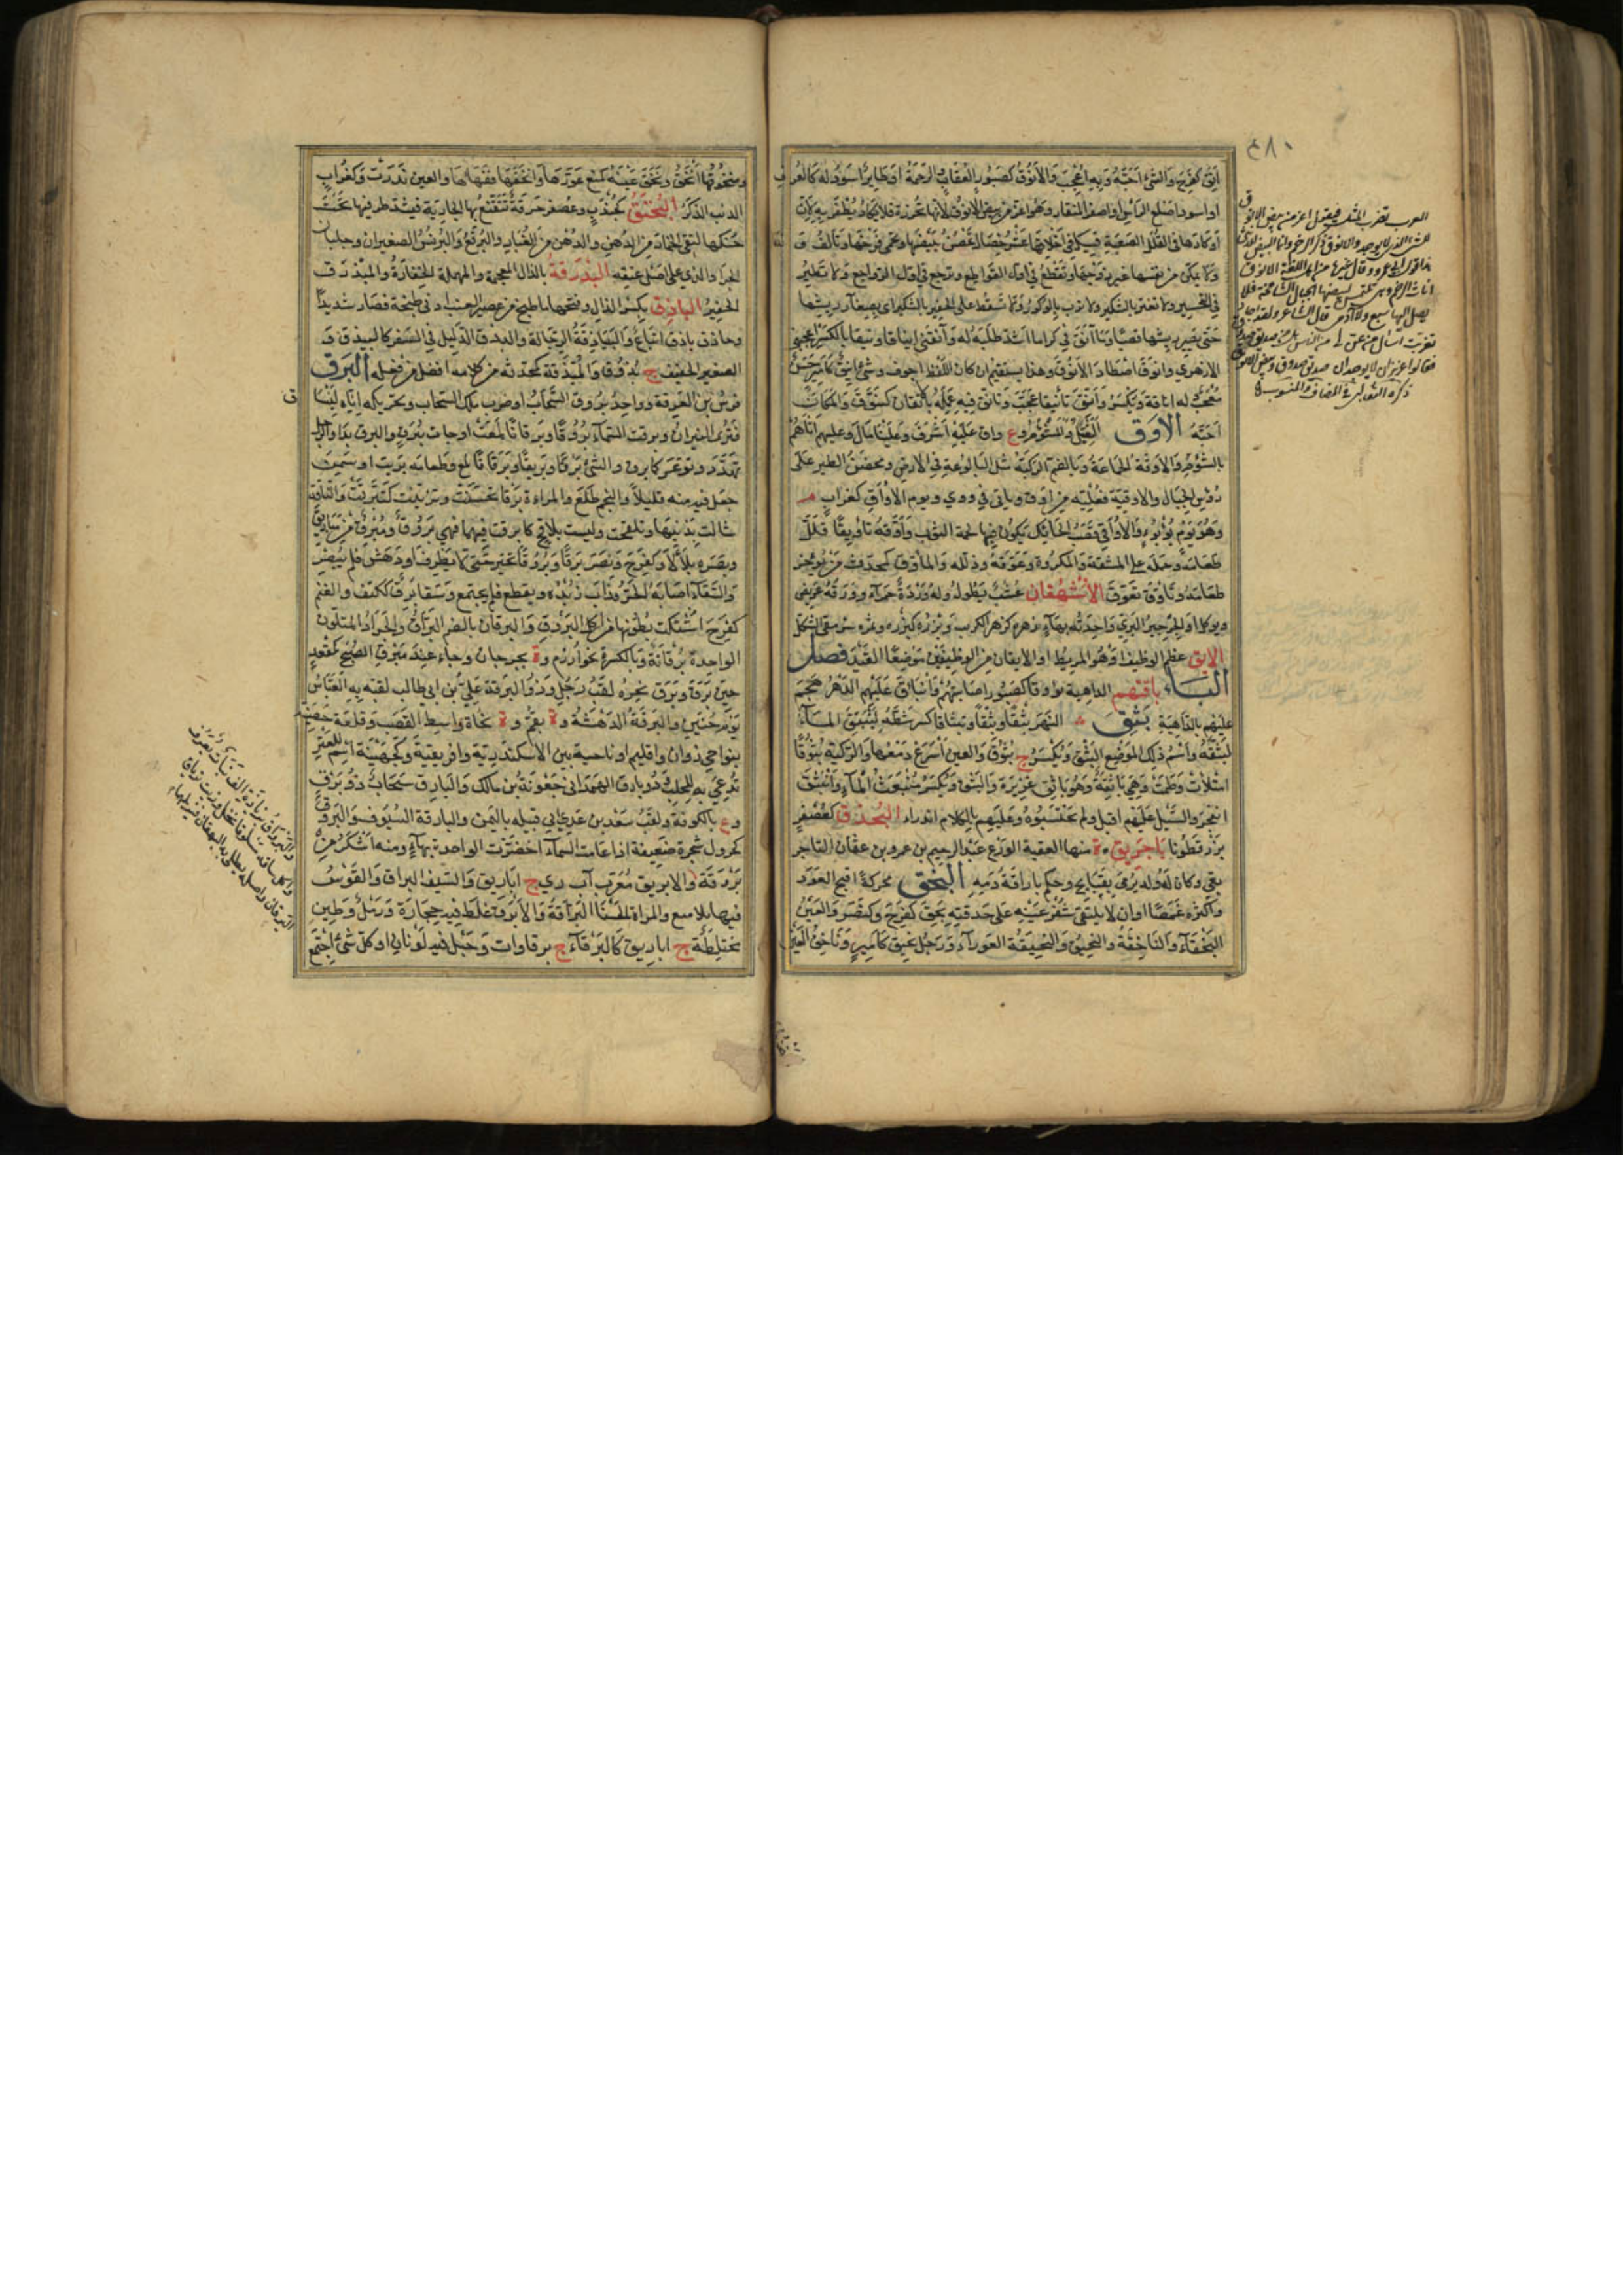 ٤٨٠
أنق كفرح والشيء أحبه وبه أعجب والأنوق كصبور العقاب والرخمة أو طاير أسود له كالعرف
أو أسود أصلع الرأس أصفر المنقار وهو أعز من بيض الأنوق لأنها تحرزه فلا يكاد يظفر به لأن
أوكارها في القلل الصعبة في أخلاقها عشر خصال تحضن بيضها وتحمي فرخها وتألف
ولا تمكن من نفسها غير زوجها وتقطع في أول القواطع وترجع في أول الرواجع ولا تطير
في التحسير ولا تغتر بالشكير ولا ترب بالوكور ولا تسقط على الجفير بالشكير أي بصغار ريشها
حتى يصير ريشها قصبا وما آنقه في كذا ما أشد طلبه له وآنقني إيناقا ونيقا بالكسر أعجبني
الأزهري وانوق اصطاد الأنوق وهذا يستقيم إن كان اللفظ أجوف وشيء أنيق كأمير حسن
معجب وله أناقة ويكسر وأنق تأنيقا عجب وتأنق فيه عمله بالإتقان كتنوق والمكان
أحبه الأوق الثقل والشؤم وع وآق عليه أشرف وعلينا مال وعليهم أتاهم
بالشؤم والأوقة الجماعة وبالضم الركية مثل البالوعة في الأرض ومحضن الطير على
رؤس الجبال والأوقية فعلية من أوق وياتي في وقي ويوم الأواق كغراب م
وهو يوم يؤيؤ والأواقي قصب الحائك يكون فيها لحمة الثوب وأوقه تأويقا قلل
طعامه وحمله على المشقة والمكروه وعوقه وذلله والمأوق كمحدث من يؤخر
طعامه وتأوق تعوق الأيهقان عشب يطول وله وردة حمراء وورقه عريض
ويوكل أو الجرجير البري واحدته بهاء زهره كزهر الكرنب وبزره كبزره
الأيق عظم الوظيف أو هو المريط أو الأيقان من الوظيفين موضعا القيد فصل
الباء باقتهم الداهية بؤوقا كصبور أصابتهم وانباق عليهم الدهر هجم
عليهم بالداهية بثق النهر بثقا وبثقا وتبثاقا كسر شطه لينبثق الماء
كبثقه واسم ذلك الموضع البثق ويكسر ج بثوق والعين أسرع دمعها والركية بثوقا
امتلأت وطمت وهي باثقة وهو باثق غزيره والبثق ويكسر منبعث الماء وانبثق
انفجر والسيل عليهم أقبل ولم يحتسبوه وعليهم بالكلام اندرأ البحذق كعصفر
بزر قطونا باجريق ة منها العقبة الورع عبد الرحيم بن عمر بن عثمان التاجر
بقي وكان له ولد يرمى بقبايح وحكم باراقة دمه البخق محركة أقبح العور
وأكثره غمصا أو أن لا يلتقي شفر عينه على حدقته بخق كفرح وكنصر والعين
البخقاء والباخقة والبخيق والبخيقة العوراء ورجل بخيق كأمير وباخق العين
ومبخوقها أبخق وبخق عينه كمنع عورها وأبخقها فقأها والعين ندرت وكغراب
الذئب الذكر البخنق كجندب وعصفر خرقة تتقنع بها الجارية فتشد طرفيها تحت
حنكها لتقي الخمار من الدهن والدهن من الغبار والبرقع والبرنس الصغيران وجلباب
الجراد الذي على أصل عنقه البذرقة بالذال المعجمة والمهملة الخفارة والمبذرق
الخفير الباذق بكسر الذال وفتحها ما طبخ من عصير العنب أدنى طبخة فصار شديدا
وحاذق باذق اتباع والبياذقة الرجالة والبيذق الدليل في السفر كالبيدق و
الصغير الخفيف ج بذوق والمبذقة كمحدثة من كلامه أفضل من فعله البرق
فرس بن العرقة وواحد بروق السحاب أو ضرب ملك السحاب وتحريكه إياه لينساق
فترى النيران وبرقت السماء بروقا وبرقانا لمعت أو جاءت ببرق والبرق بدا والرجل
تهدد وتوعد كأبرق والشيء برقا وبريقا وبرقانا لمع وطعامه بزيت أو سمن
جعل فيه منه قليلا والنجم طلع والمراءة برقا تحسنت وتزينت كبرقت والناقة
شالت بذنبها وتلقحت وليست بلاقح كأبرقت فيهما فهي بروق ومبرق من مباريق
وبصره تلألأ وكفرح ونصر برقا وبروقا تحير حتى لا يطرف أو دهش فلم يبصر
والسقاء أصابه الحر فذاب زبده وتقطع فلم يجتمع وسقاء برق ككتف والغنم
كفرح اشتكت بطونها من أكل البروق والبرقان بالضم البراق والجراد المتلون
الواحدة برقانة وبالكسر ة بخوارزم وة بجرجان وجاء عند مبرق الصبح كمقعد
حين برق وبرق نحره لقب رجل وذو البرقة علي بن ابي طالب لقبه به العباس
يوم حنين والبرقة الدهشة وة بقم وة تجاه واسط القصب وقلعة حصينة
بنواحي دوان وإقليم أو ناحية بين الإسكندرية وافريقية وكجهينة اسم للعنز
تدعى به للحلب وذو بارق الهمداني جعونة بن مالك والبارق سحاب ذو برق
وع بالكوفة ولقب سعد بن عدي أبي قبيلة باليمن والبارقة السيوف والبروق
كجرول شجرة ضعيفة إذا غامت السماء اخضرت الواحدة بهاء ومنه أشكر من
بروقة والإبريق معرب آب ري ج أباريق والسيف البراق والقوس
فيها تلاميع والمراة الحسناء البراقة والأبرق غلظ فيه حجارة ورمل وطين
مختلطة ج أباريق كالبرقاء ج برقاوات وجبل فيه لونان أو كل شيء اجتمع